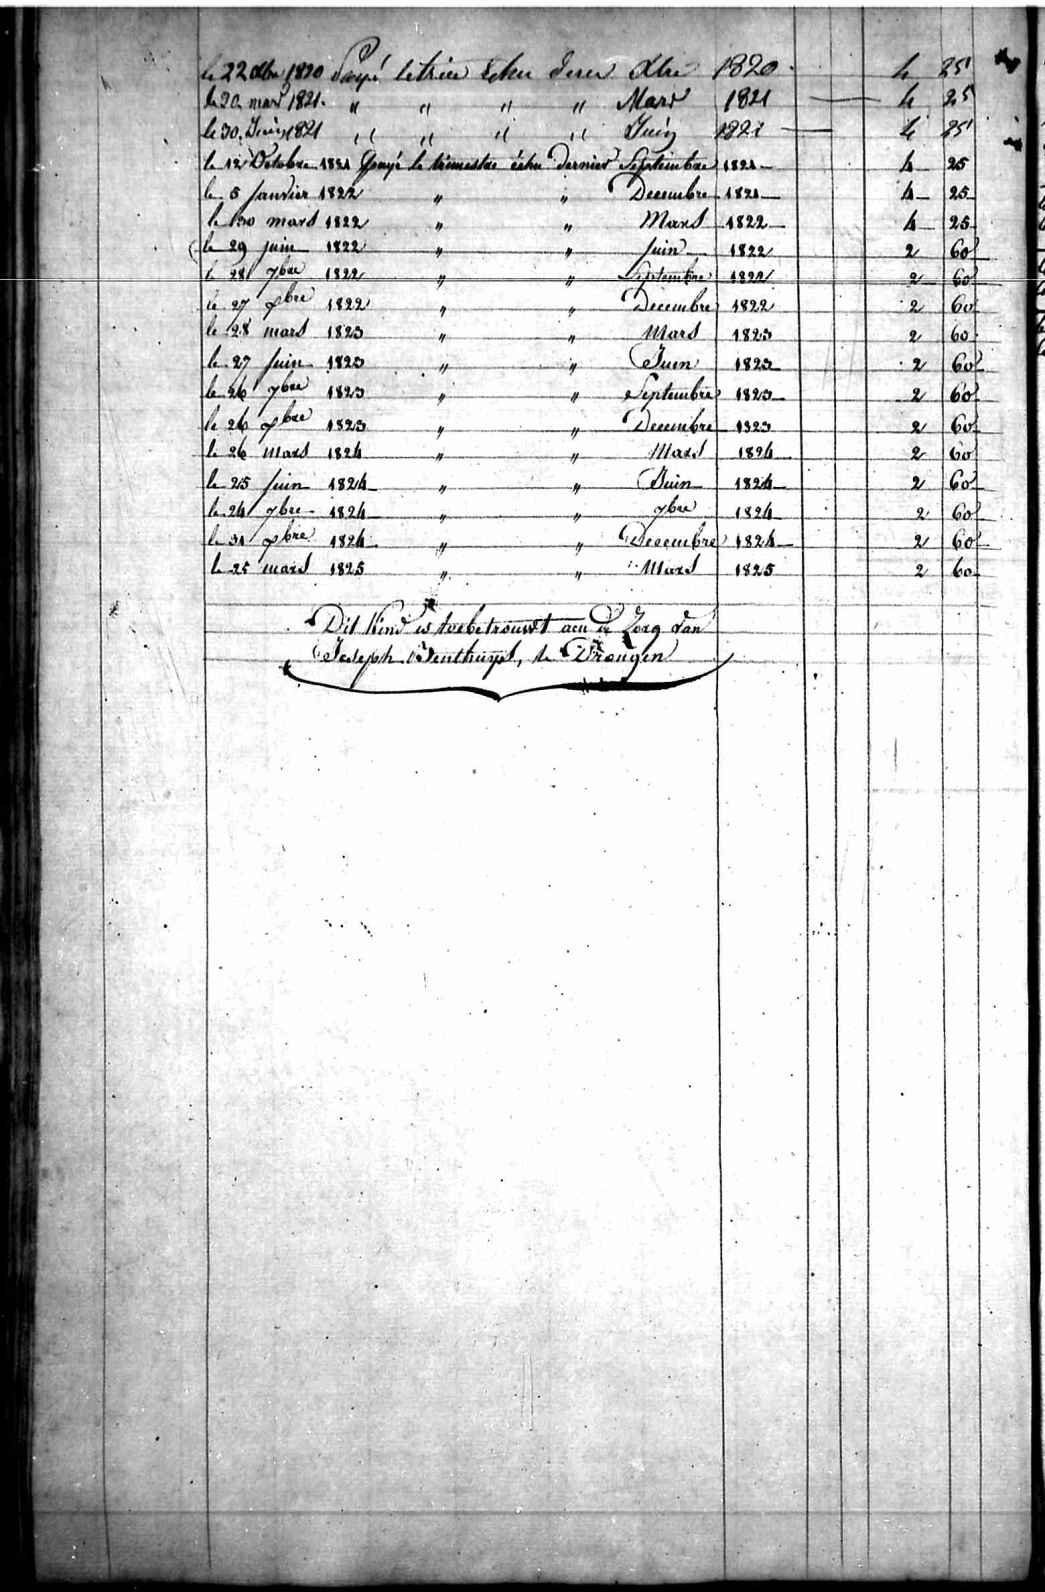 le 22 Xbre 1820 Payé le trim Echu derer Xbre 1820 4 25
le 20 mars 1821 " " " " Mars 1821 4 25
le 30 Juin 1821 " " " " Juin 1821 4 25
le 12 Octobre 1821 Payé le trimestre échu Dernier Septembre 1821 4 25
le 5 Janvier 1822 " " Decembre 1821 4 25
le 30 mars 1822 " " Mars 1822 4 25
le 29 juin 1822 " " juin 1822 2 60
le 28 7bre 1822 " " Septembre 1822 2 60
le 27 Xbre 1822 " " Decembre 1822 2 60
le 28 mars 1823 " " Mars 1823 2 60
le 27 Juin 1823 " " Juin 1823 2 60
le 26 7bre 1823 " " Septembre 1823 2 60
le 26 Xbre 1823 " " Decembre 1823 2 60
le 26 mars 1824 " " Mars 1824 2 60
le 25 Juin 1824 " " Juin 1824 2 60
le 24 7bre 1824 " " 7bre 1824 2 60
le 31 Xbre 1824 " " Decembre 1824 2 60
le 25 mars 1825 " " Mars 1825 2 60
Dit Kind is toebetrouwt aen de Zorg van
Joseph, te Drongen